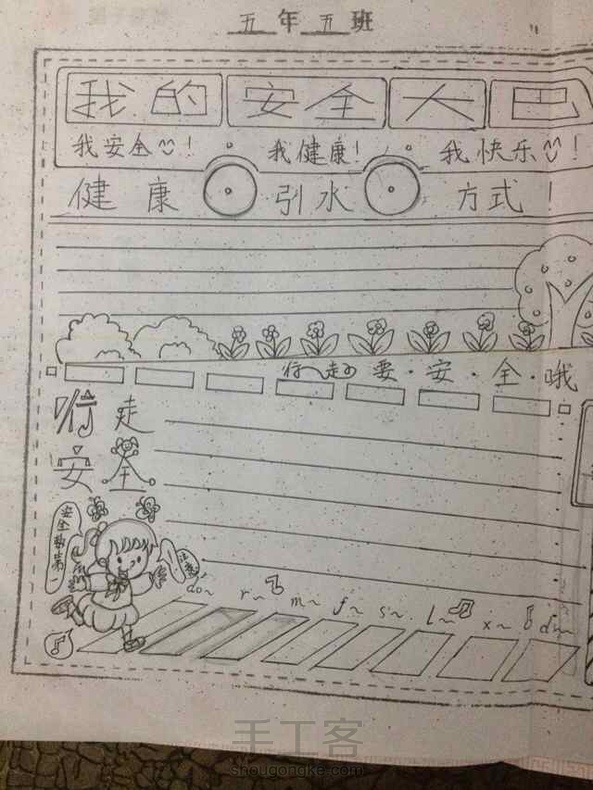 五年五班
我的安全大巴
我安全！ 我健康！ 我快乐！
健康 引水 方式！
行走 要·安·全·哦
行走
安全
安全第一
do~ r~ m~ f~ s~ l~ x~ d~
手工客
shougongke.com